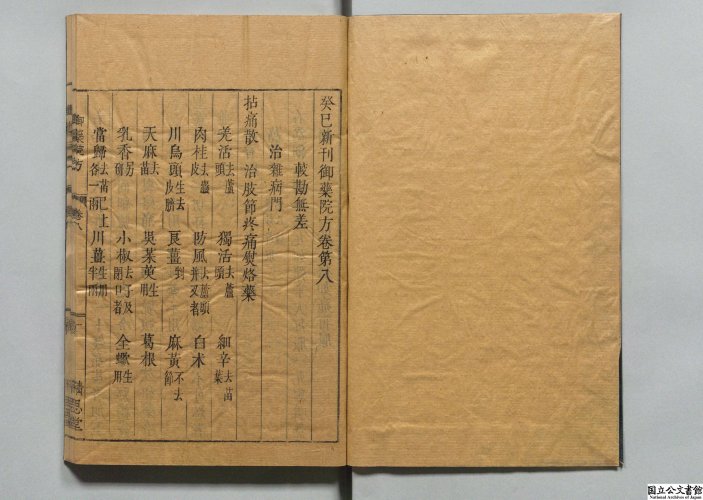 癸巳新刊御藥院方卷第八
較勘無差
治雜病門
拈痛散 治肢節疼痛熨烙藥
羌活去蘆頭 獨活去蘆頭 細辛去苗葉
肉桂去麤皮 防風去蘆頭并叉者 白朮
川烏頭生去皮臍 良薑剉 麻黃不去節
天麻去苗 吳茱萸生用 葛根
乳香另研 小椒去子及閉口者 全蠍生用
當歸去苗已上各一兩 川薑生用半兩
御藥院方 卷八 一
國立公文書館
National Archives of Japan